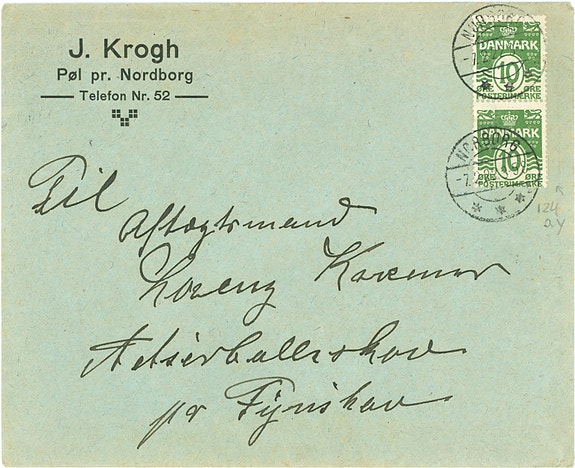 J. Krogh
Pøl pr. Nordborg
Telefon Nr. 52
NORDBORG
DANMARK
10
ØRE ØRE
POSTFRIMÆRKE
NORDBORG
DANMARK
10
ØRE ØRE
POSTFRIMÆRKE
124
Til
Aftægtsmand
Lorenz
pr Fynshav